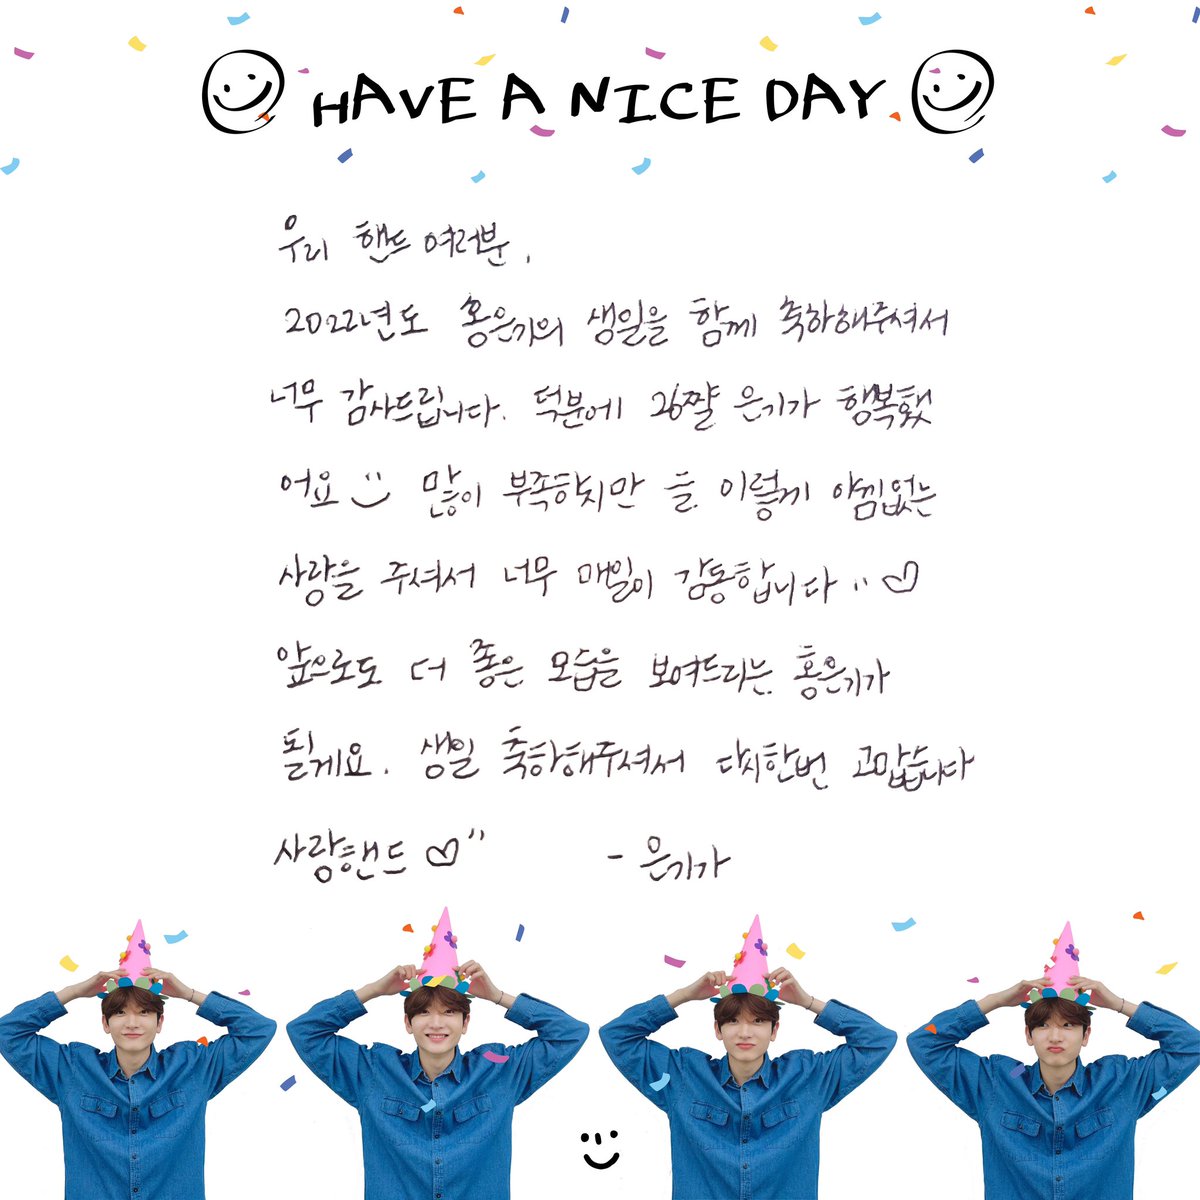 HAVE A NICE DAY
우리 핸드 여러분,
2022년도 홍은기의 생일을 함께 축하해주셔서
너무 감사드립니다. 덕분에 26짤 은기가 행복했
어요 많이 부족하지만 늘 이렇게 아낌없는
사랑을 주셔서 너무 매일이 감동합니다 ♡
앞으로도 더 좋은 모습을 보여드리는 홍은기가
될게요. 생일 축하해주셔서 다시한번 고맙습니다
사랑핸드 ♡ - 은기가